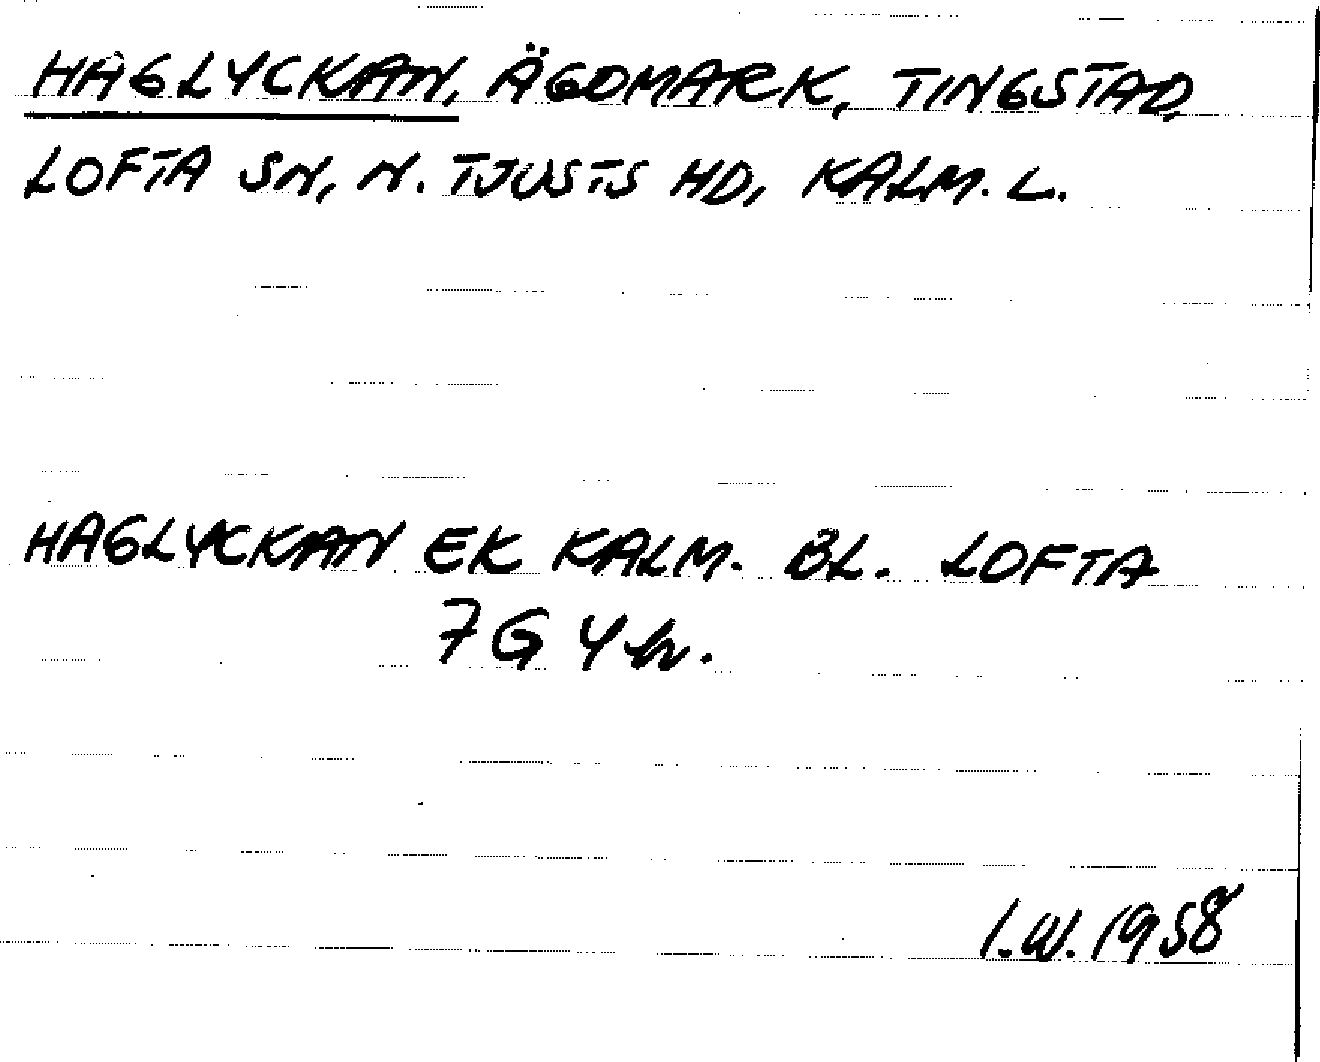 HAGLYCKAN, ÄGOMARK, TINGSTAD,
LOFTA SN, N. TJUSTS HD, KALM. L.
HAGLYCKAN EK KALM. BL. LOFTA
7G 4h.
I.W. 1958